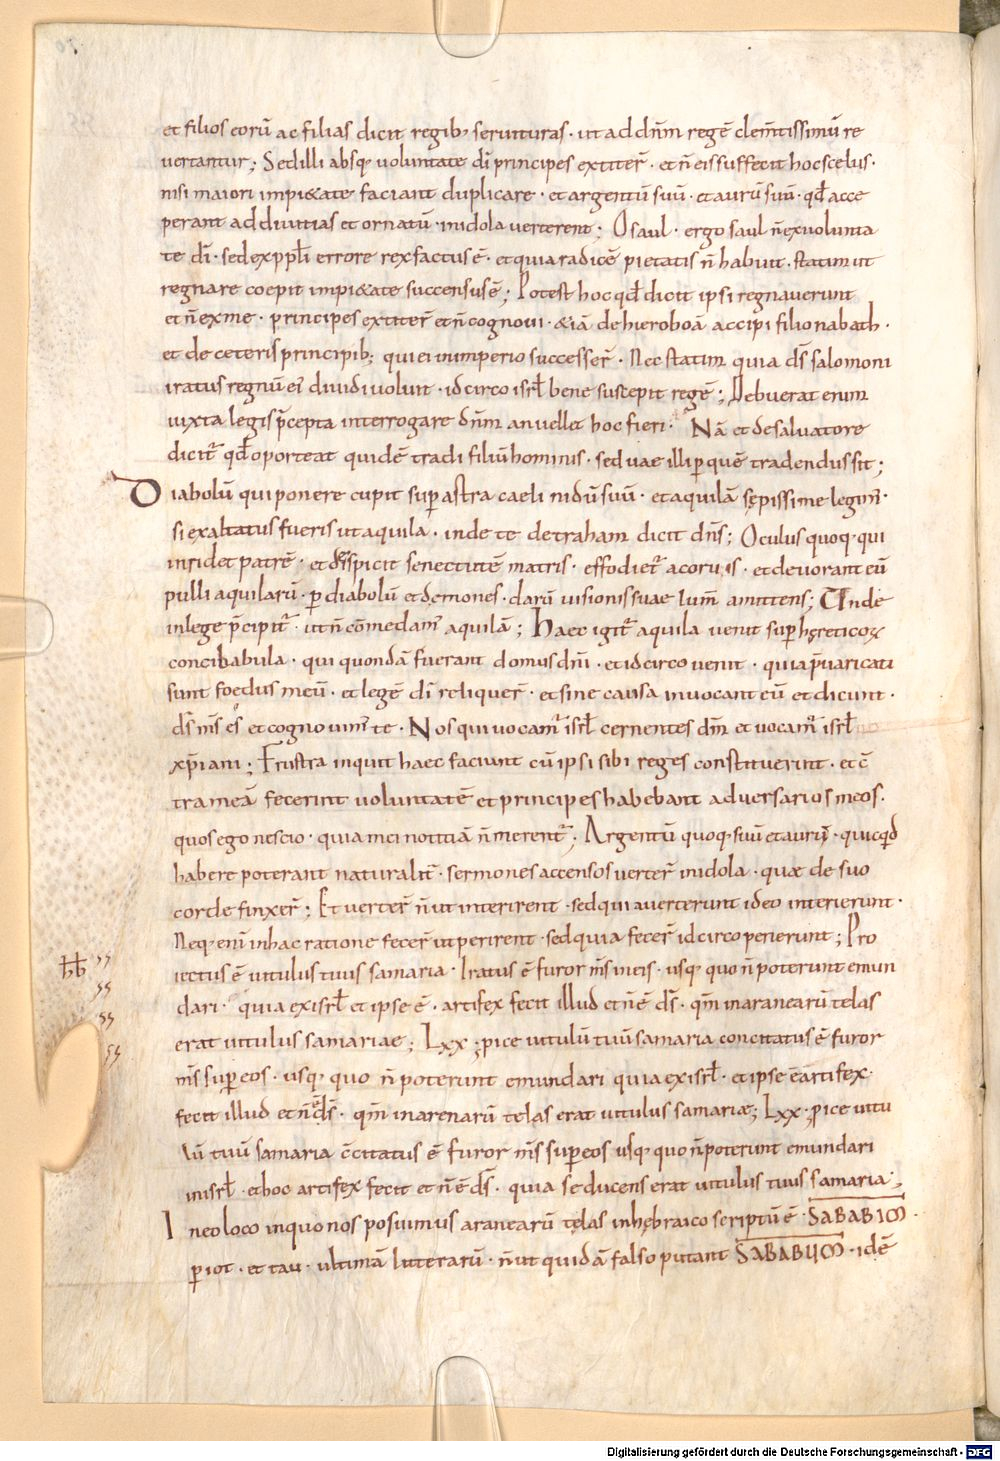 et filios eorū ac filias dicit regib; seruituras · ut ad dn̄m regē clem̄tissimū re
uertantur; Sed illi absq; uoluntate dī principes extiter̄ · et n̄ eis suffecit hoc scelus ·
nisi maiori impi&ate faciant duplicare · et argentū suū · et aurū suū · qđ acce
perant ad diuitias et ornatū · in idola uerterent; O saul · ergo saul n̄ ex uolunta
te dī · sed ex pp̄li errore rex factus ē · et quia radicē pietatis n̄ habuit · statim ut
regnare coepit impi&ate succensus ē; Potest hoc qđ dicit ipsi regnauerunt
et n̄ ex me · principes extiter̄ et n̄ cognoui · &iā de hieroboā accipi filio nabath ·
et de ceteris principib; qui ei in imperio successer̄ · Nec statim quia ds̄ salomoni
iratus regnū ei' diuidi uoluit · idcirco isrl̄ bene suscepit regē; Debuerat enim
iuxta legis p̄cepta interrogare dn̄m an uellet hoc fieri · Nā et de saluatore
dicit̄ qđ oporteat quidē tradi filiū hominis · sed uae illi ꝑ quē tradendus sit;
Diabolū qui ponere cupit suꝑ astra caeli nidū suū · et aquilā sępissime legim' ·
si exaltatus fueris ut aquila · inde te detraham dicit dn̄s; Oculus quoq; qui
inridet patrē · et dispicit senectutē matris · effodiet̄ a coruis · et deuorant eū
pulli aquilarū · ꝑ diabolū et dęmones · clarū uisionis suae lum̄ amittens; Unde
in lege p̄cipit̄ · ut n̄ comedam' aquilā; Haec igit̄ aquila uenit suꝑ hęreticoꝝ
conciliabula · qui quondā fuerant domus dn̄i · et idcirco uenit · quia p̄uaricati
sunt foedus meū · et legē dī reliquer̄ · et sine causa inuocant eū et dicunt ·
ds̄ ms̄ es et cognouim' te · Nos qui uocam' isrl̄ cernentes dm̄ et uocam' isrl̄
xp̄iani; Frustra inquit haec faciunt cū ipsi sibi reges constituerint · et c̄
tra meā fecerint uoluntatē et principes habebant aduersarios meos ·
quos ego nescio · quia mei notitiā n̄ merent̄; Argentū quoq; suū et aurū · quicqđ
habere poterant naturalit̄ · sermones accensos uerter̄ in idola · quae de suo
corde finxer̄; Et uerter̄ n̄ ut interirent · sed qui auerterunt ideo interierunt ·
Neq; eni' in hac ratione fecer̄ ut perirent · sed quia fecer̄ idcirco perierunt; Pro
iectus ē uitulus tuus samaria · Iratus ē furor ms̄ in eis · usq; quo n̄ poterunt emun
dari · quia ex isrl̄ et ipse ē · artifex fecit illud et n̄ ē ds̄ · qm̄ in aranearū telas
erat uitulus samariae; Lxx; pice uitulū tuū samaria concitatus ē furor
ms̄ suꝑ eos · usq; quo n̄ poterunt emundari quia ex isrl̄ · et ipse ē artifex ·
fecit illud et n̄ ē ds̄ · qm̄ in arenarū telas erat uitulus samariæ; Lxx · pice uitu
lū tuū samaria c̄citatus ē furor ms̄ suꝑ eos usq; quo n̄ poterunt emundari
in isrl̄ · et hoc artifex fecit et n̄ ē ds̄ · quia seducens erat uitulus tuus samaria;
In eo loco in quo nos posuimus aranearū tęlas in hębraico scriptū ē · SABABIM ·
ꝑ iot · et tau · ultimā litterarū · n̄ ut quidā falso putant SABABYM · idē
Digitalisierung gefördert durch die Deutsche Forschungsgemeinschaft · DFG